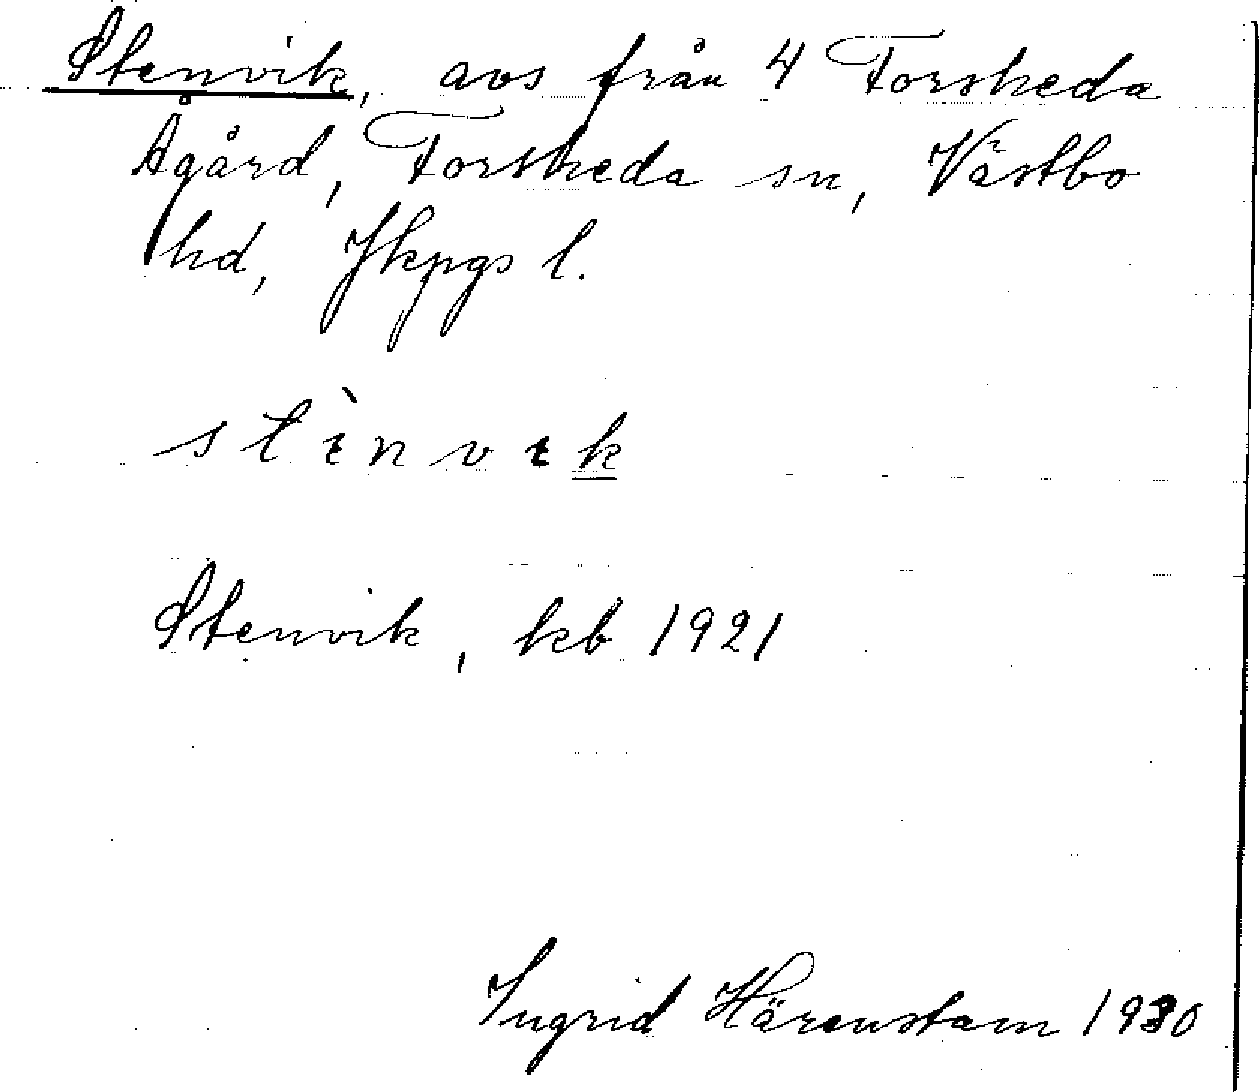 Stenvik, avs från 4 Forsheda
Ågård, Forsheda sn, Västbo
hd, Jkpgs l.
stìnvɩk
Stenvik, kb 1921
Ingrid Härenstam 1930